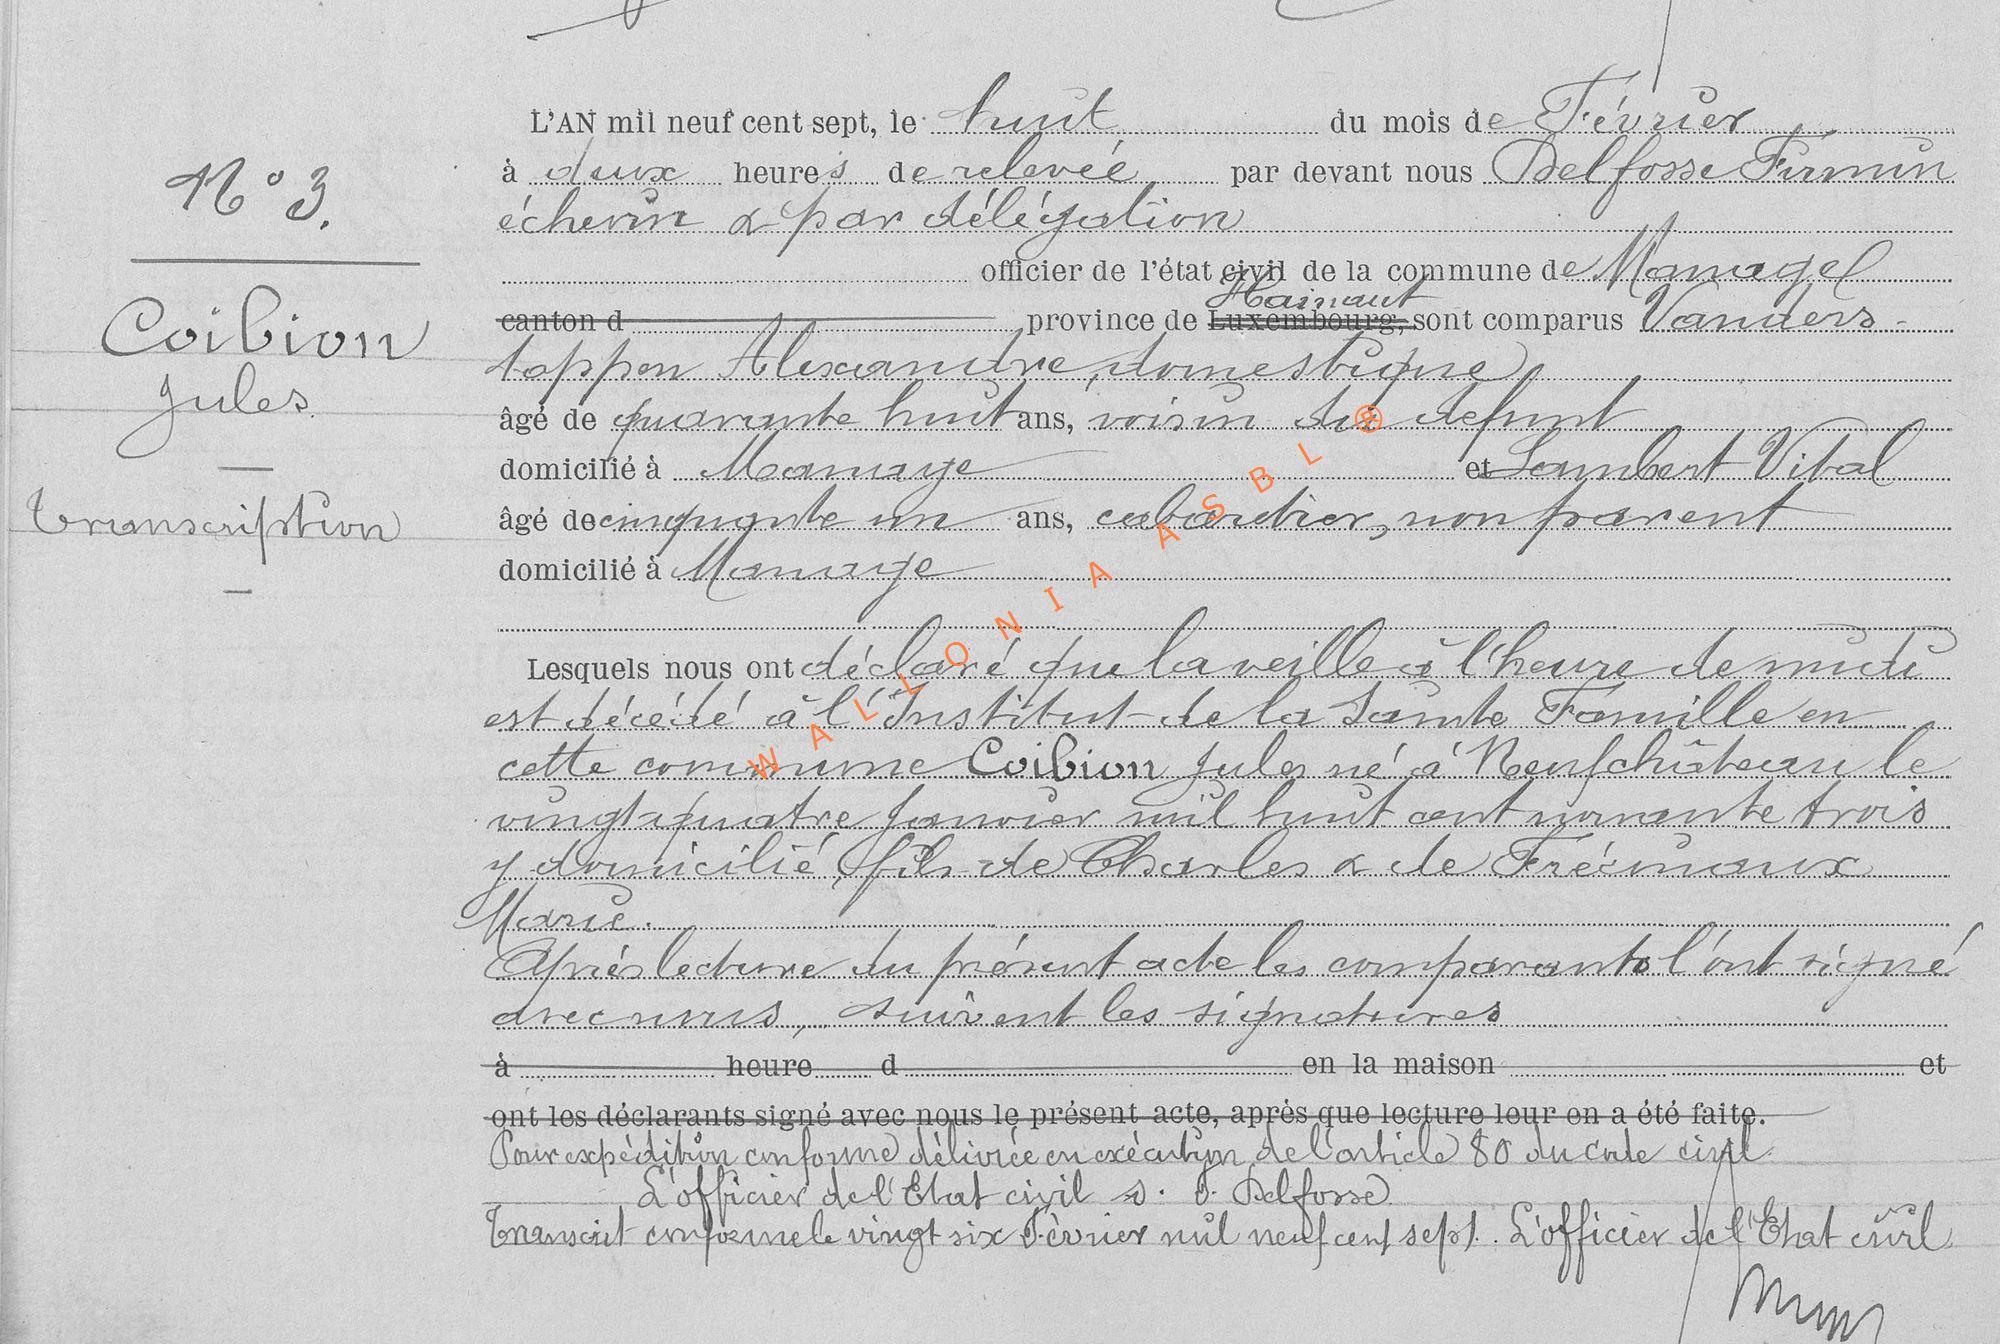 N° 3.
Coibion
Jules
Transcription
L'AN mil neuf cent sept, le huit du mois de Février
à deux heures de relevée par devant nous Delfosse Firmin
échevin & par délégation
officier de l'état civil de la commune de Manage
canton d province de Luxembourg, Hainaut sont comparus Vanders-
toppen Alexandre, domestique
âgé de quarante huit ans, voisin du défunt
domicilié à Manage et Lambert Vital
âgé de cinquante un ans, cabaretier, non parent
domicilié à Manage
Lesquels nous ont déclaré que la veille à l'heure de midi
est décédé à l'Institut de la Sainte Famille en
cette commune Coibion Jules né à Neufchâteau le
vingt quatre Janvier mil huit cent nonante trois
y domicilié, fils de Charles & de Frécinaux
Marie.
Après lecture du présent acte les comparants l'ont signé
avec nous, suivent les signatures
à heure d en la maison et
ont les déclarants signé avec nous le présent acte, après que lecture leur en a été faite.
Pour expédition conforme délivrée en exécution de l'article 80 du code civil
L'officier de l'Etat civil s. d. Delfosse
Transcrit conforme le vingt six Février mil neuf cent sept. L'officier de l'Etat civil
WALLONIA ASBL ®